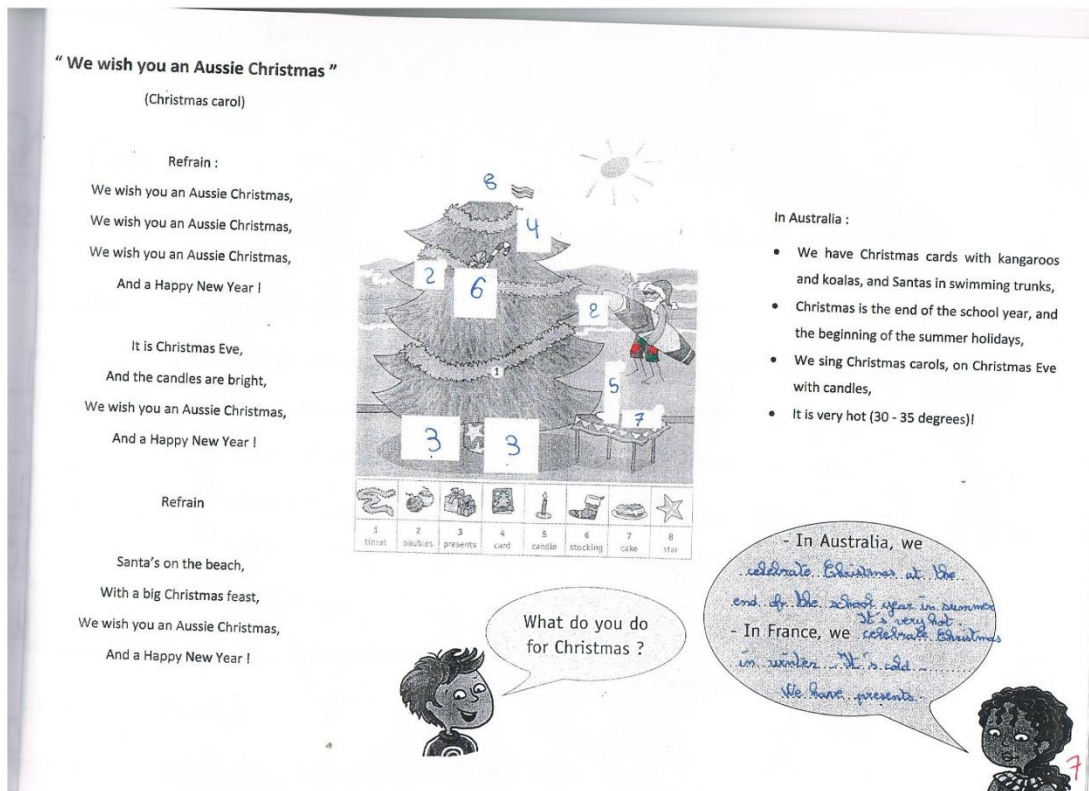 “ We wish you an Aussie Christmas ”
(Christmas carol)
Refrain :
We wish you an Aussie Christmas,
We wish you an Aussie Christmas,
We wish you an Aussie Christmas,
And a Happy New Year !
It is Christmas Eve,
And the candles are bright,
We wish you an Aussie Christmas,
And a Happy New Year !
Refrain
Santa's on the beach,
With a big Christmas feast,
We wish you an Aussie Christmas,
And a Happy New Year !
8
4
2
6
2
1
5
7
3
3
1 2 3 4 5 6 7 8
tinsel baubles presents card candle stocking cake star
In Australia :
• We have Christmas cards with kangaroos
and koalas, and Santas in swimming trunks,
• Christmas is the end of the school year, and
the beginning of the summer holidays,
• We sing Christmas carols, on Christmas Eve
with candles,
• It is very hot (30 - 35 degrees)!
What do you do
for Christmas ?
- In Australia, we
celebrate Christmas at the
end of the school year in summer
It's very hot.
- In France, we celebrate Christmas
in winter. It's cold.
We have presents.
7